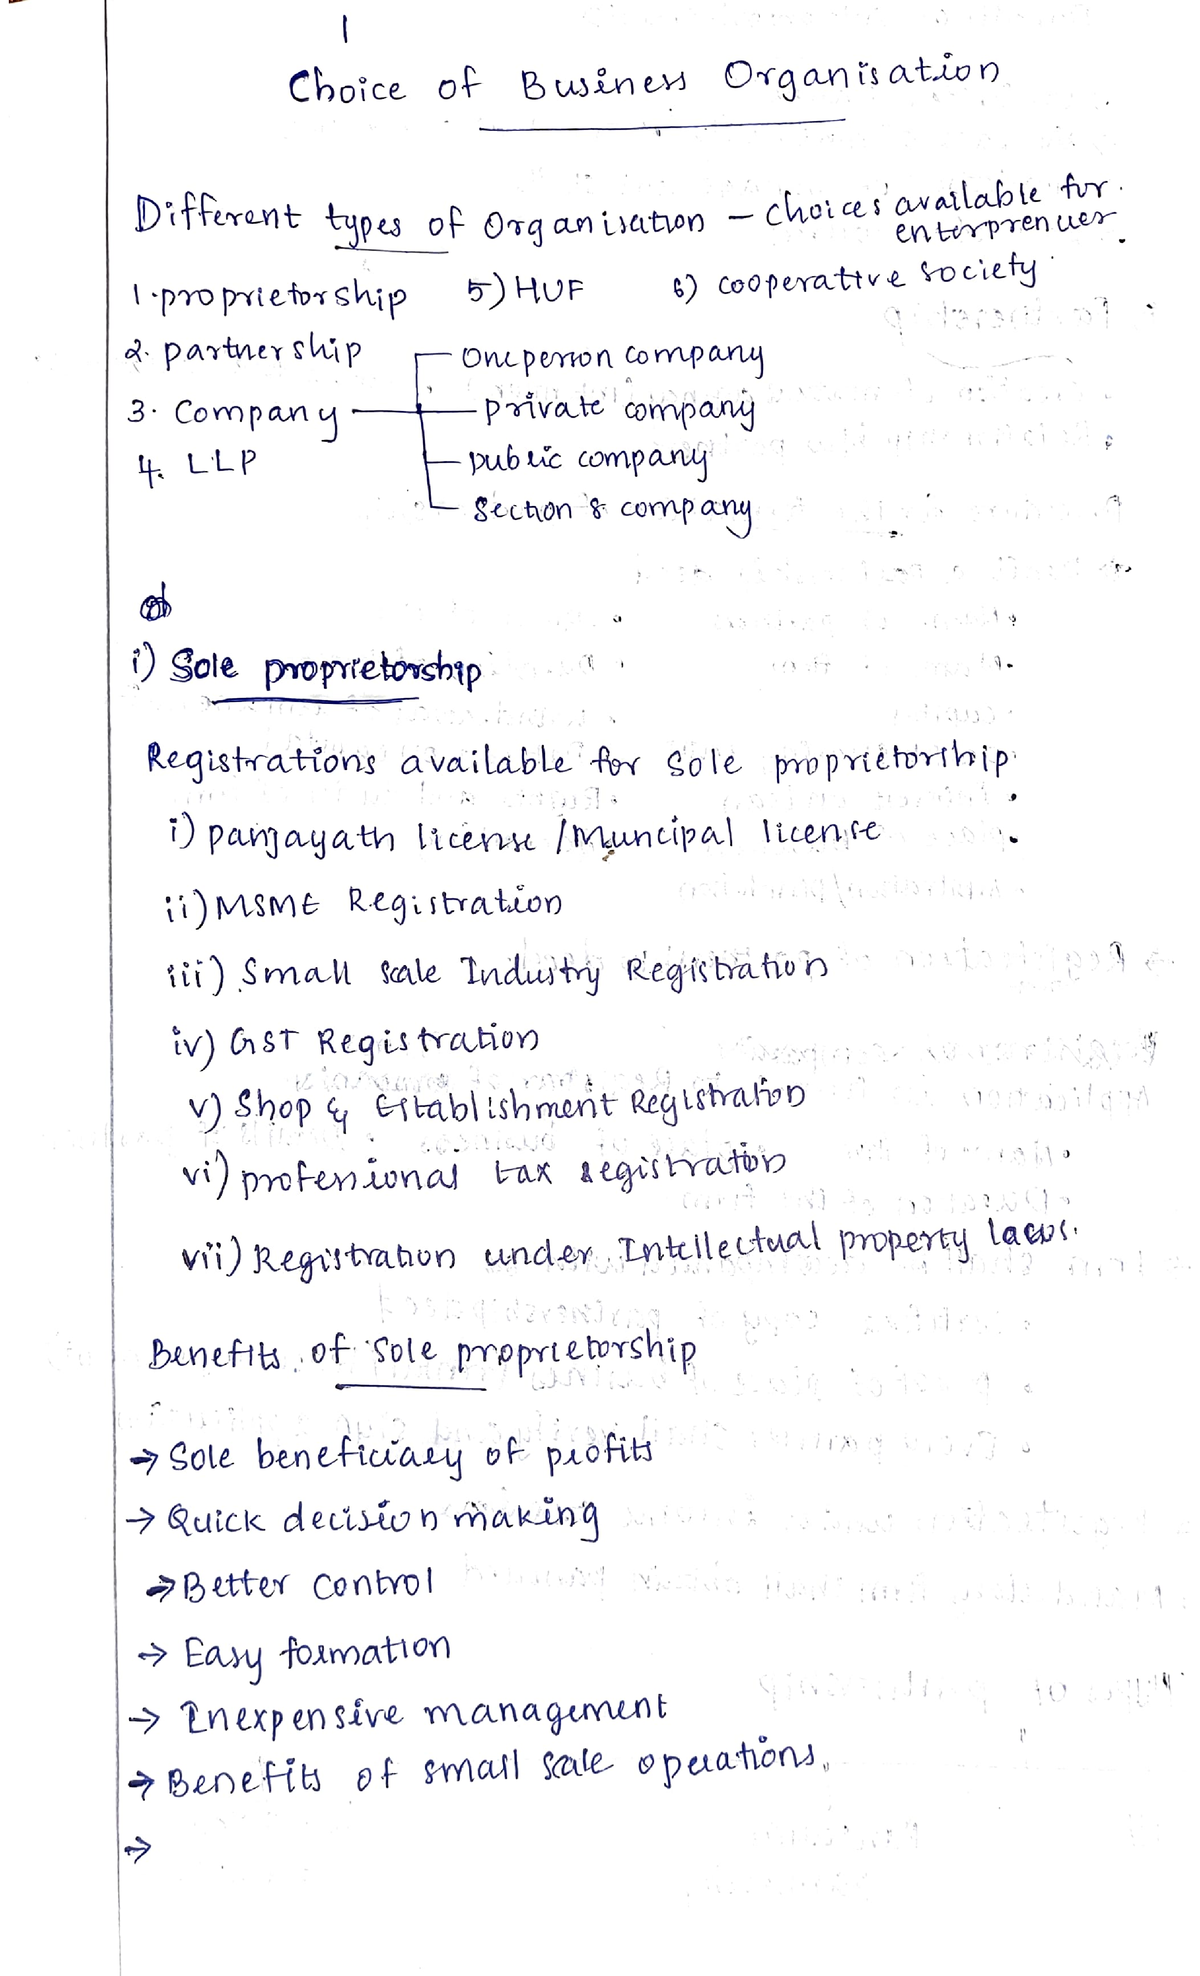 1
Choice of Business Organisation
Different types of Organisation – choices available for
enterprenuer.
1. proprietorship 5) HUF 6) cooperative society
2. partnership One person company
3. Company private company
4. LLP public company
Section 8 company
i) Sole proprietorship
Registrations available for Sole proprietorship.
i) panjayath license / Muncipal license
ii) MSME Registration
iii) Small scale Industry Registration
iv) GST Registration
v) Shop & Establishment Registration
vi) professional tax registration
vii) Registration under Intellectual property laws.
Benefits of Sole proprietorship
→ Sole beneficiary of profits
→ Quick decision making
→ Better control
→ Easy formation
→ Inexpensive management
→ Benefits of small scale operations.
→